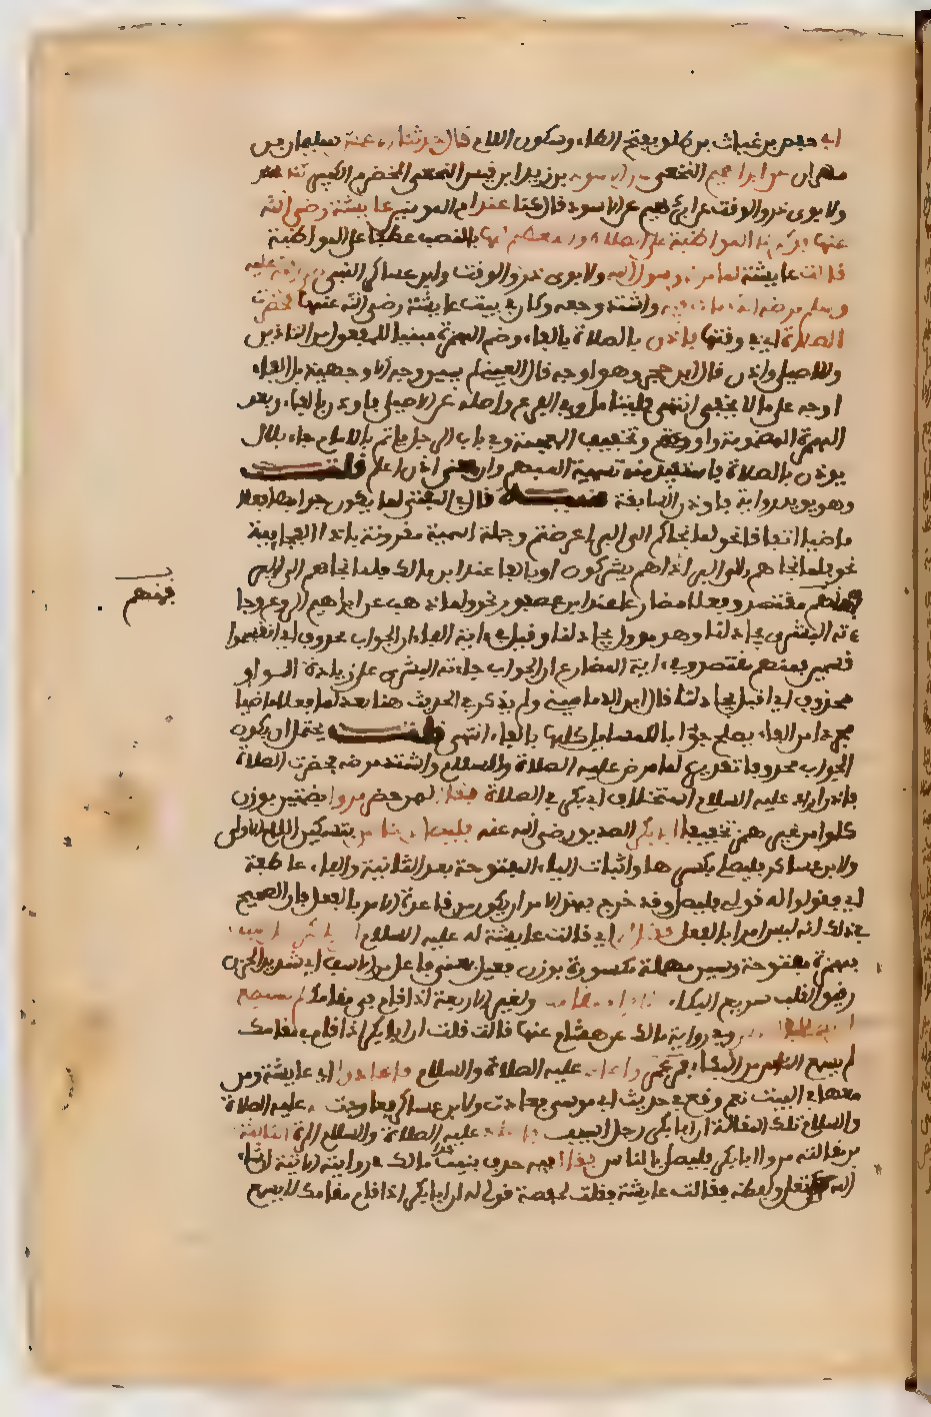 ابي حفص بن غياث بن طلق بفتح الطاء وسكون اللام قال حدثنا الاعمش سليمان بن
مهران عن ابراهيم النخعي عن الاسود بن يزيد ابن قيس النخعي المخضرم الكبير
ولابوي ذر والوقت عن ابراهيم عن الاسود قال كنا عند ام المومنين عايشة رضي الله
عنها فذكرنا المواظبة على الصلاة والتعظيم لها بالنصب عطفا على المواظبة
قالت عايشة لما مرض رسول الله ولابوي ذر والوقت وابن عساكر النبي صلى الله عليه
وسلم مرضه الذي مات فيه واشتد وجعه وكان في بيت عايشة رضي الله عنها فحضرت
الصلاة اي وقتها فاذن بالصلاة بالفاء وضم الهمزة مبنيا للمفعول من التاذين
وللاصيلي واذن قال ابن حجر وهو اوجه قال العيني لم يبين وجه الاوجهية بل الفاء
اوجه على ما لا يخفى انتهى فليتامل وفي الفرع واصله عن الاصيلي فاوذن بالفاء وبعد
الهمزة المضمومة واو وتخفيف المعجمة وفي باب الرجل ياتم بالامام جاء بلال
يوذن بالصلاة فاستفيد منه تسمية المبهم وان معنى اذن اعلم قلت
وهو يويد رواية فاوذن السابقة قال في المغني لما يكون جوابها فعلا
ماضيا اتفاقا نحو فلما نجاكم الى البر اعرضتم وجملة اسمية مقرونة باذا الفجاية
نحو فلما نجاهم الى البر اذا هم يشركون او بالفاء عند ابن مالك فلما نجاهم الى البر
فمنهم
فمنهم مقتصد وفعلا مضارعا عند ابن عصفور نحو فلما ذهب عن ابراهيم الروع وجا
ءته البشرى يجادلنا وهو موول بجادلنا وقيل في اية الفاء ان الجواب محذوف اي انقسموا
قسمين فمنهم مقتصد وفي اية المضارع ان الجواب جاءته البشرى على زيادة الواو
محذوف اي اقبل يجادلنا قال ابن الدماميني ولم يذكر في الحديث هنا بعد لما فعلا ماضيا
مجردا من الفاء يصلح جوابا للما بل كلها بالفاء انتهى قلت يحتمل ان يكون
الجواب محذوفا تقديره لما مرض عليه الصلاة والسلام واشتد مرضه فحضرت الصلاة
فاذن اراد عليه السلام استخلاف ابي بكر في الصلاة فقال لمن حضر مروا بضمتين بوزن
كلوا من غير همز تخفيفا ابا بكر الصديق رضي الله عنه فليصل بالناس بتسكين اللام الاولى
ولابن عساكر فليصلي بكسرها واثبات الياء المفتوحة بعد الثانية والفاء عاطفة
اي فقولوا له قولي فليصل وقد خرج بهذا الامر ان يكون من قاعدة الامر بالفعل فان الصحيح
في ذلك انه ليس امرا بالفعل فقيل له اي قالت عايشة له عليه السلام ان ابا بكر رجل اسيف
بهمزة مفتوحة وسين مهملة مكسورة بوزن فعيل بمعنى فاعل من الاسف اي شديد الحزن
رقيق القلب سريع البكاء اذا قام مقامك ولغير الاربعة اذا قام في مقامك لم يستطع
ان يصلي بالناس وفي رواية مالك عن هشام عنها قالت قلت ان ابا بكر اذا قام في مقامك
لم يسمع الناس من البكاء فمر عمر واعاد عليه الصلاة والسلام فاعادوا اي عايشة ومن
معها في البيت نعم وقع في حديث ابي موسى فعادت ولابن عساكر فعاودت عليه الصلاة
والسلام تلك المقالة ان ابا بكر رجل اسيف فاعاد عليه الصلاة والسلام المرة الثالثة
من مقالته مروا ابا بكر فليصل بالناس فقال فيه حذف بينه مالك في روايته الاتية ان شاء
الله تعلى ولفظه فقالت عايشة فقلت لحفصة قولي له ان ابا بكر اذا قام مقامك لم يسمع